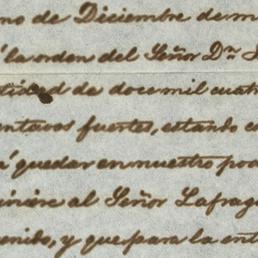 no de Diciembre de m
á la orden del Señor Dn
tidad de doce mil cuatr
entavos fuertes, estando c
á quedar en nuestro pod
uiniere al Señor Lafrag
venido, y que para la ent